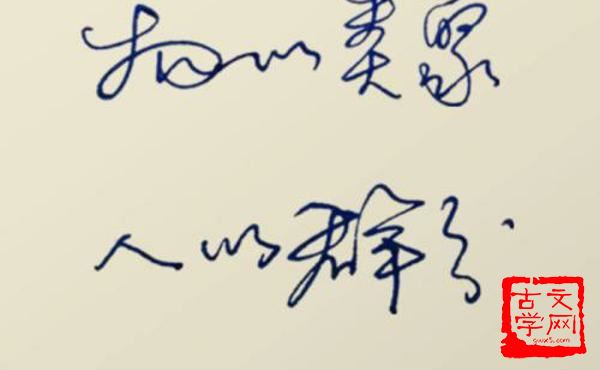 物以类聚
人以群分
古文
学网
gwx5.com